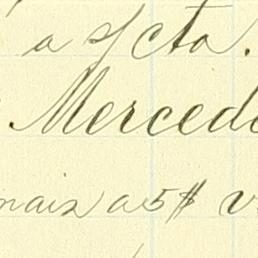 a s/cta.
Mercede
mais a 5$ v